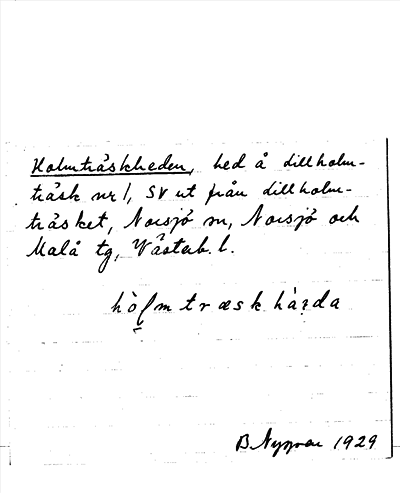 Holmträskheden, hed å Lillholm-
träsk nr 1, SV ut från Lillholm-
träsket, Norsjö sn, Norsjö och
Malå tg, Västerb. l.
hòlmtræskhàrda
1929